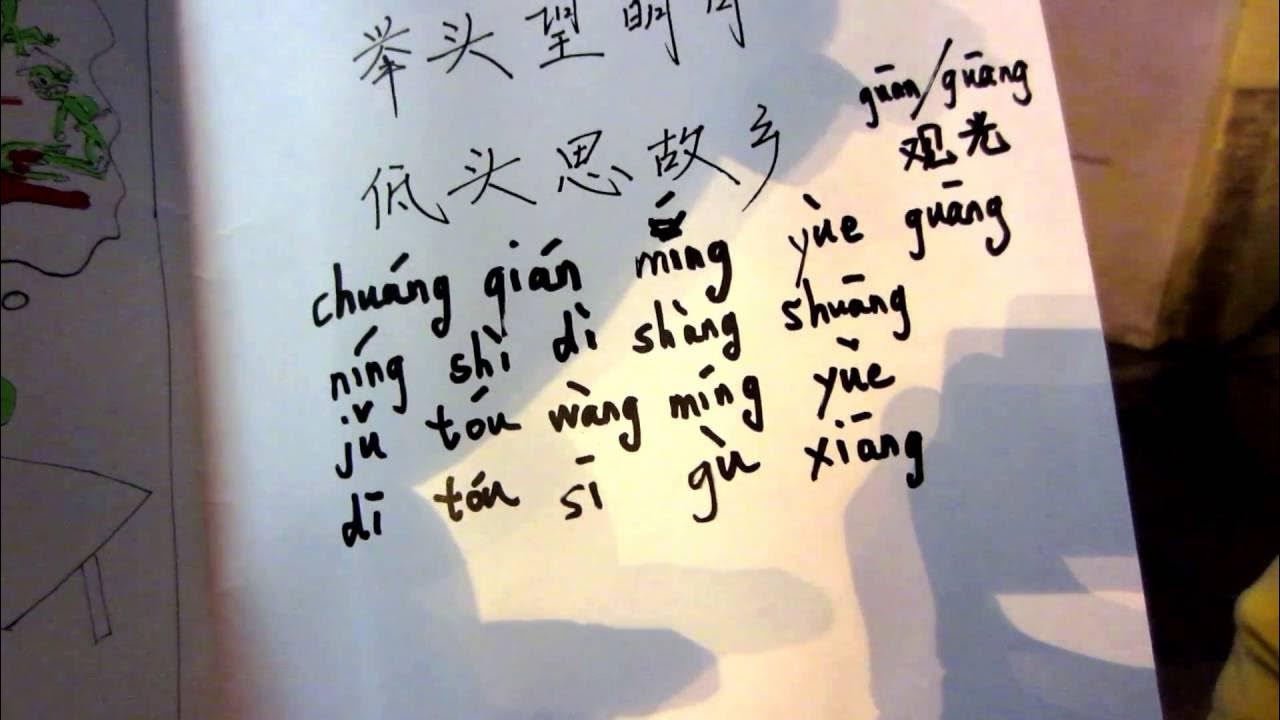 举头望明月
低头思故乡
guān/guāng
观光
chuáng qián míng yùe guāng
níng shì dì shàng shuāng
jǔ tóu wàng míng yùe
dī tóu sī gù xiāng